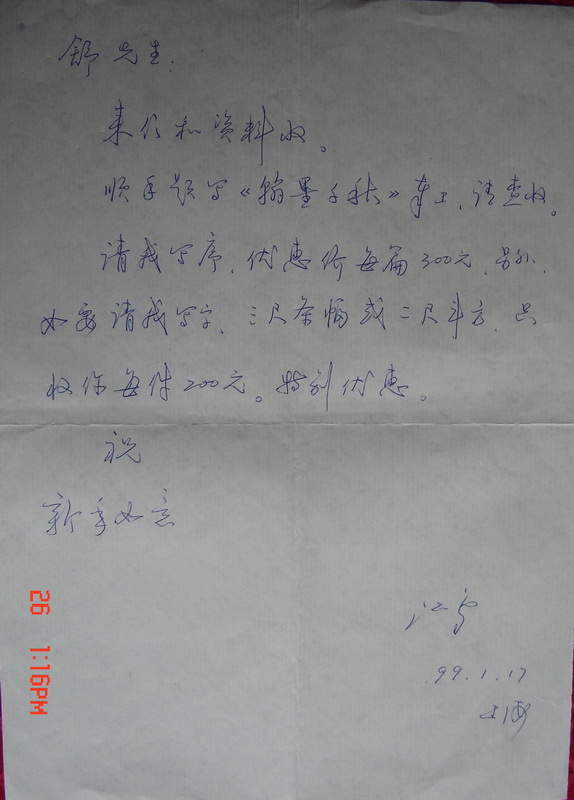 舒先生:
来信和资料收。
顺手题写《翰墨千秋》奉上,请查收。
请我写序,优惠价每篇300元,另外,
如要请我写字,三尺条幅或二尺斗方,只
收你每件200元。特别优惠。
祝
新年如意
99.1.17
上海
26 1:16PM